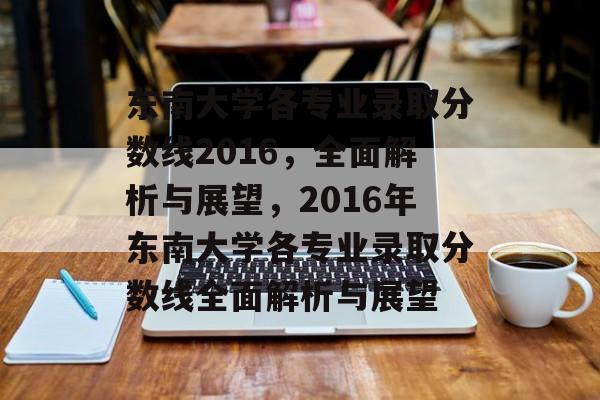 东南大学各专业录取分
数线2016，全面解
析与展望，2016年
东南大学各专业录取分
数线全面解析与展望